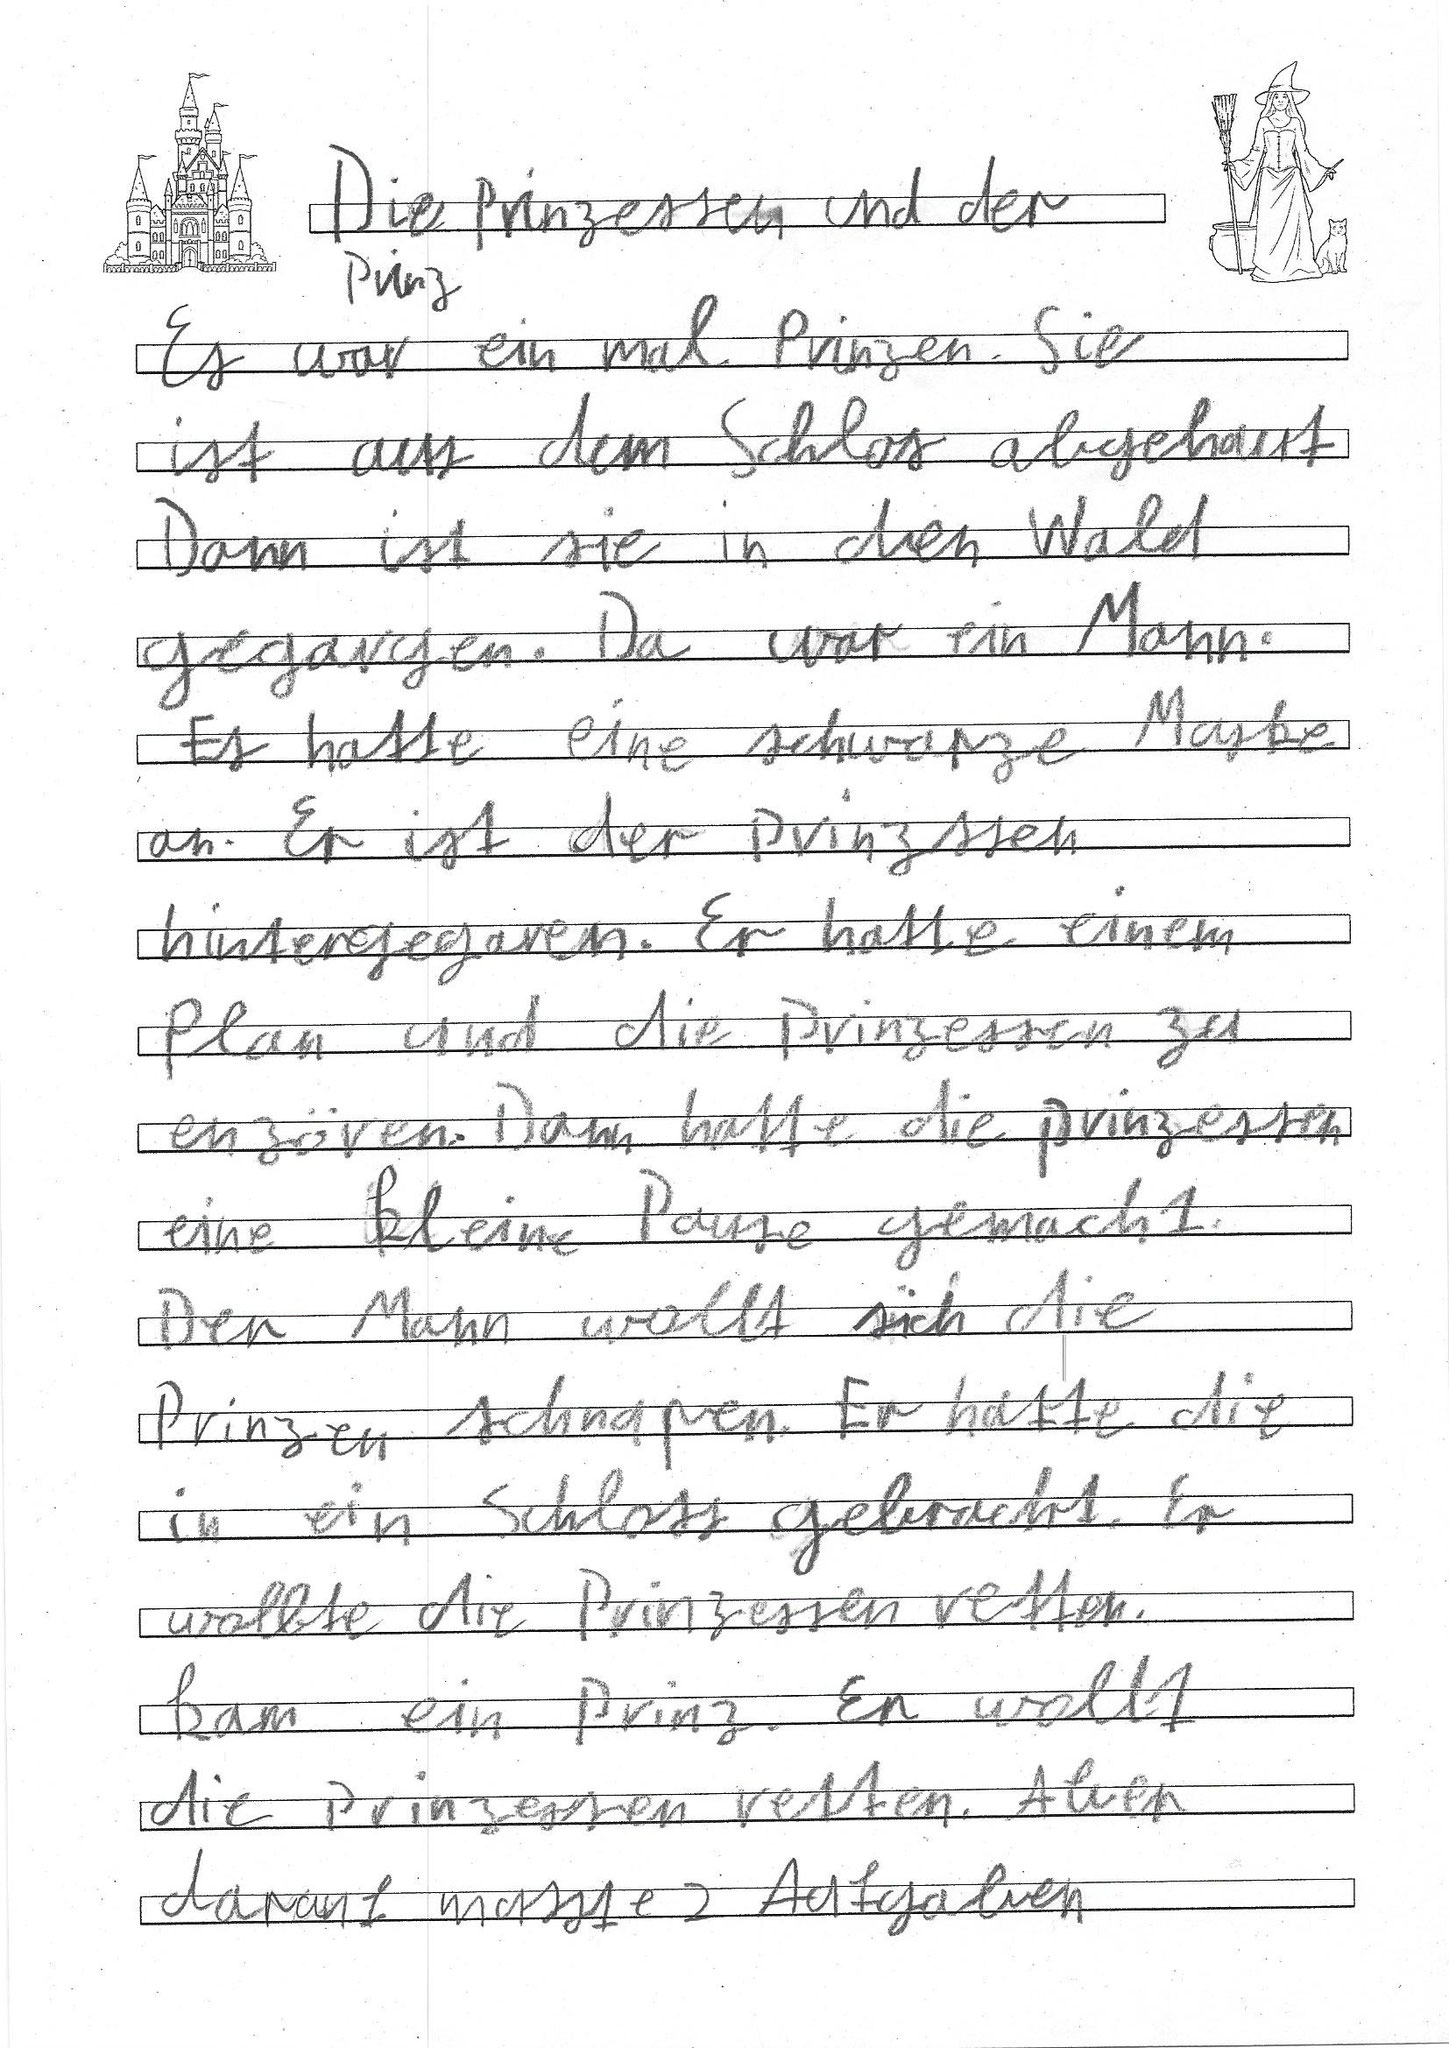 Die Prinzessen und der
Prinz
Es war ein mal Prinzen. Sie
ist aus dem Schlos abgehaut
Dann ist sie in den Wald
gegangen. Da war ein Mann.
Es hatte eine schwarze Maske
an. Er ist der Prinzssen
hintergegaren. Er hatte einem
Plan und die Prinzessen zu
enzören. Dann hatte die prinzessen
eine kleine Pause gemacht.
Der Mann wollt sich die
Prinzen schnapen. Er hatte die
in ein Schloss gebracht. Er
wollte die Prinzessen retten.
kam ein Prinz. Er wollt
die Prinzessen retten. Aber
darant masste 2 Aufgaben